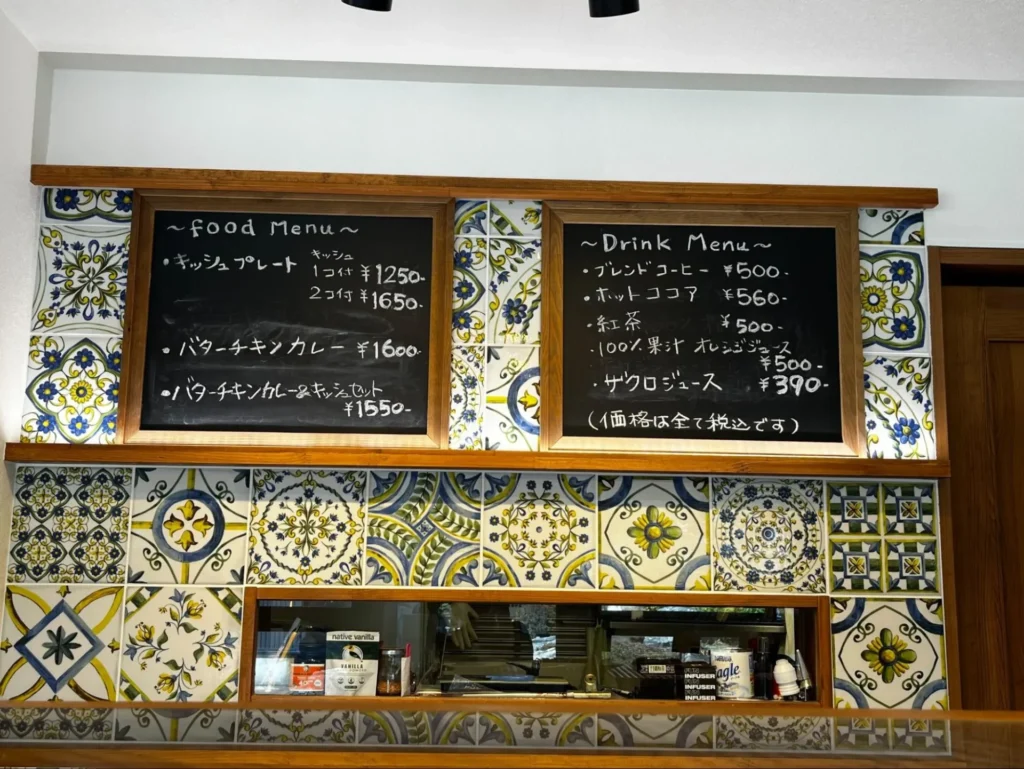 ~food Menu~
・キッシュプレート キッシュ
1コ付 ¥1250-
2コ付 ¥1650-
・バターチキンカレー ¥1600-
・バターチキンカレー&キッシュセット
¥1550-
~Drink Menu~
・ブレンドコーヒー ¥500-
・ホットココア ¥560-
・紅茶 ¥500-
・100%果汁 オレンジジュース
¥500-
・ザクロジュース ¥390-
(価格は全て税込です)
native vanilla
VANILLA
INFUSER
INFUSER
INFUSER
agle